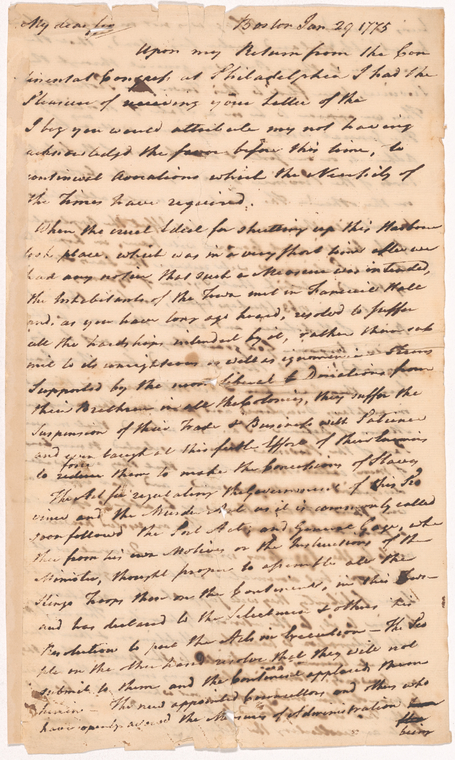 My dear sir Boston Jan. 29 1775
Upon my Return from the Con
tinental Congress at Philadelphia I had the
Pleasure of receiving your Letter of the
I beg you would attribute my not having
acknowledgd the favor before this time, to
continual Avocations which the Necessity of
the Times have required.
When the cruel Edict for shutting up this Harbour
took place, which was in a very short time after we
had any notice that such a Measure was intended,
the Inhabitants of the Town met in Faneuil Hall
and, as you have long ago heard, resolvd to suffer
all the hardships intended by it, rather than sub
mit to its unrighteous as well as ignominious Terms
Supported by the most liberal Donations from
their Brethren in all the Colonies, they suffer the
suspension of their Trade & Business with Patience
and even laugh at this Effort of their Enemies
to force them to make the Concessions of Slaves
The Act for regulating the Government of this Pro
vince and the Murder Act as it is commonly called
soon followed the Port Act; and General Gage, whe
ther from his own Motives or the Instructions of the
Minister, thought proper to assemble all the
Kings Troops then on the Continent, in this Town
and has declared to the Selectmen & others his
Resolution to put the Acts in Execution – The Peo
ple on the other hand resolve that they will not
submit to them and the Continent applauds them
herein – The new appointed Councellors and others who
have openly avowd the Measures of Administration
being